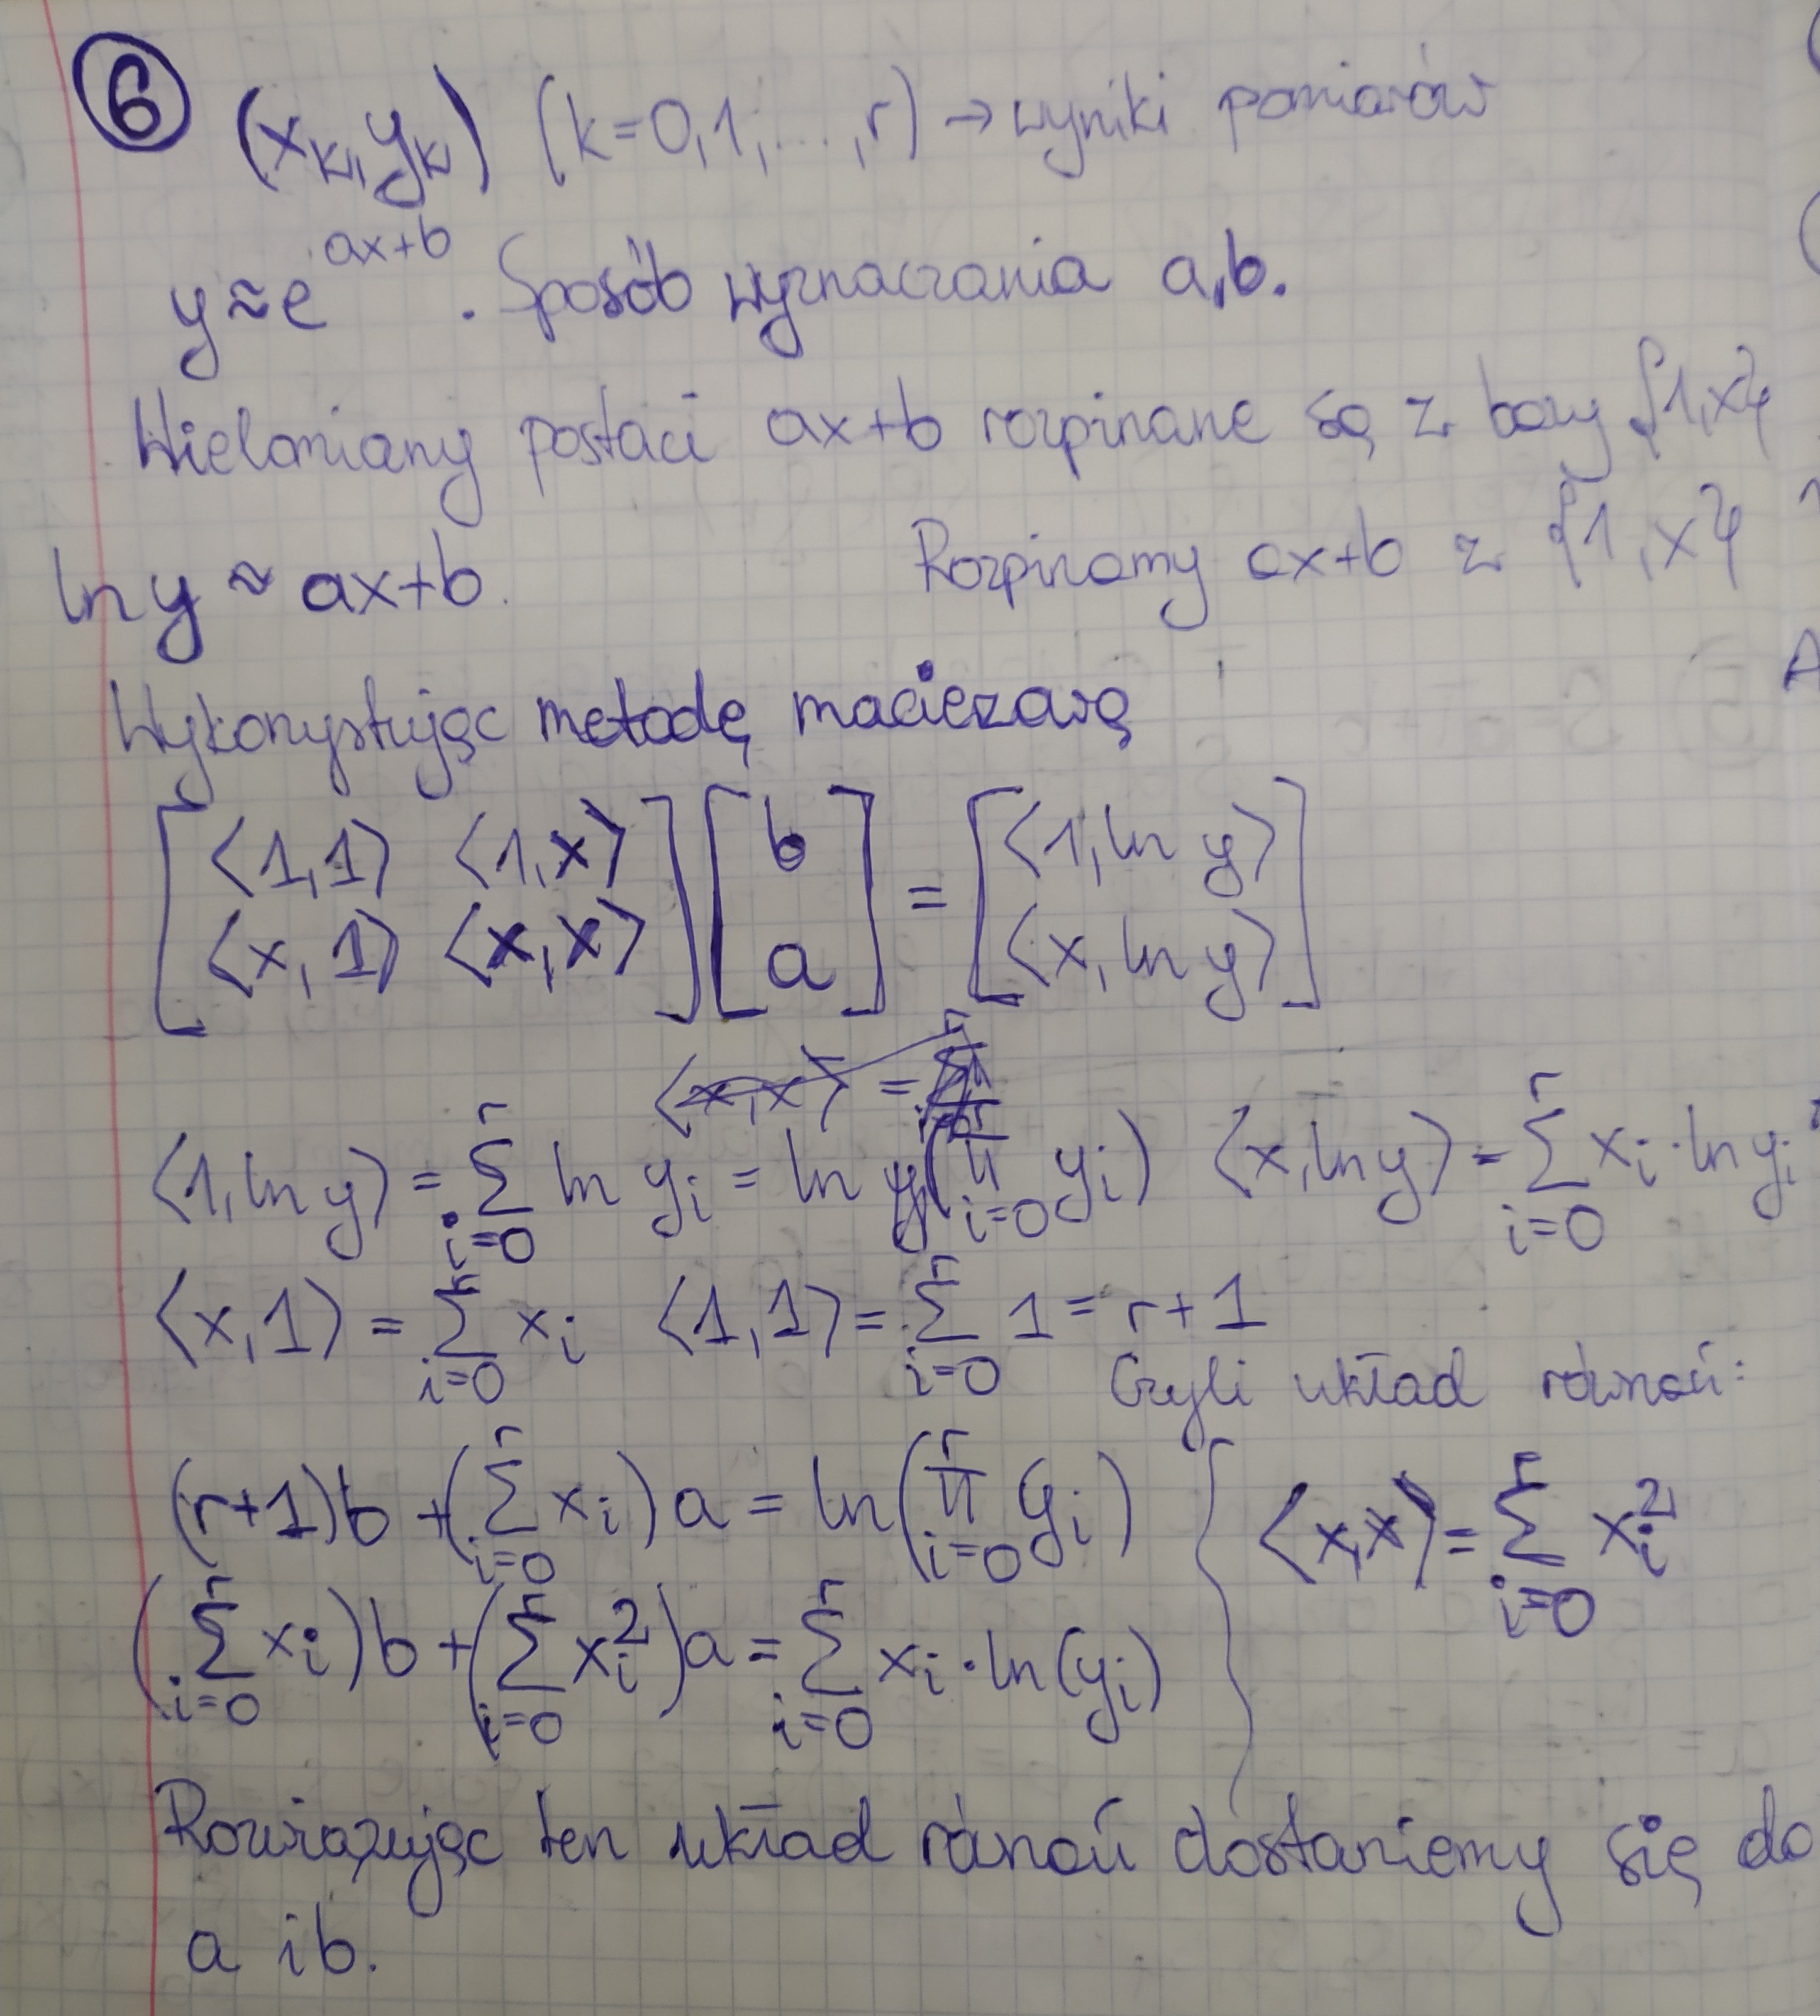 6 (x_k, y_k) (k=0,1,...,r) → wyniki pomiarów
y ≈ e^{ax+b}. Sposób wyznaczania a,b.
Wielomiany postaci ax+b rozpinane są z bazy {1,x}
ln y ≈ ax+b. Rozpinamy ax+b z {1,x}
Wykorzystując metodę macierzową
[⟨1,1⟩ ⟨1,x⟩] [b] = [⟨1,ln y⟩]
[⟨x,1⟩ ⟨x,x⟩] [a] [⟨x,ln y⟩]
⟨1,ln y⟩ = ∑_{i=0}^{r} ln y_i = ln (∏_{i=0}^{r} y_i) ⟨x,ln y⟩ = ∑_{i=0}^{r} x_i · ln y_i
⟨x,1⟩ = ∑_{i=0}^{r} x_i ⟨1,1⟩ = ∑_{i=0}^{r} 1 = r+1
Czyli układ równań:
(r+1)b + (∑_{i=0}^{r} x_i) a = ln(∏_{i=0}^{r} y_i) { ⟨x,x⟩ = ∑_{i=0}^{r} x_i^2
(∑_{i=0}^{r} x_i) b + (∑_{i=0}^{r} x_i^2) a = ∑_{i=0}^{r} x_i · ln(y_i)
Rozwiązując ten układ równań dostaniemy się do
a i b.